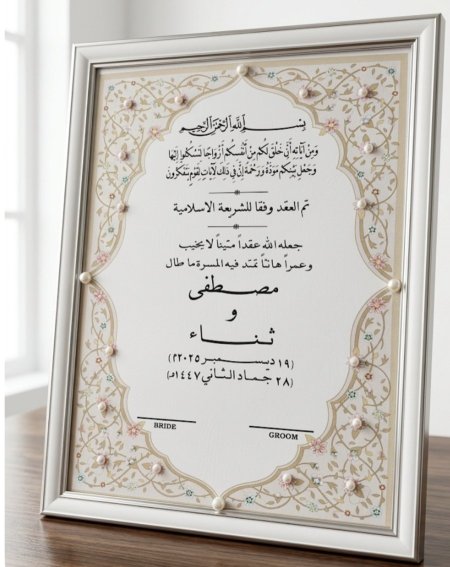 بِسْمِ اللَّهِ الرَّحْمَنِ الرَّحِيمِ
وَمِنْ آيَاتِهِ أَنْ خَلَقَ لَكُم مِّنْ أَنفُسِكُمْ أَزْوَاجًا لِّتَسْكُنُوا إِلَيْهَا
وَجَعَلَ بَيْنَكُم مَّوَدَّةً وَرَحْمَةً إِنَّ فِي ذَٰلِكَ لَآيَاتٍ لِّقَوْمٍ يَتَفَكَّرُونَ
تم العقد وفقا للشريعة الاسلامية
جعله الله عقداً متيناً لا يخيب
وعمراً هانئاً تمتد فيه المسرة ما طال
مصطفى
و
ثناء
(١٩ ديسمبر ٢٠٢٥م)
(٢٨ جماد الثاني ١٤٤٧هـ)
BRIDE
GROOM